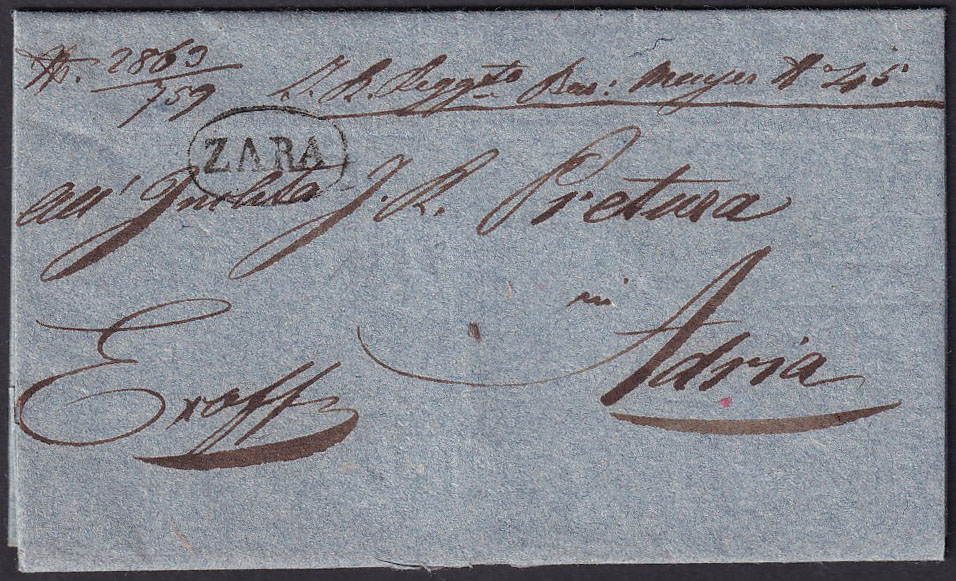 N. 2863/759 I. R. Regg.to Bar: Mayer N.o 45
ZARA
all' Inclita I. R. Pretura
in
Adria
Exoff